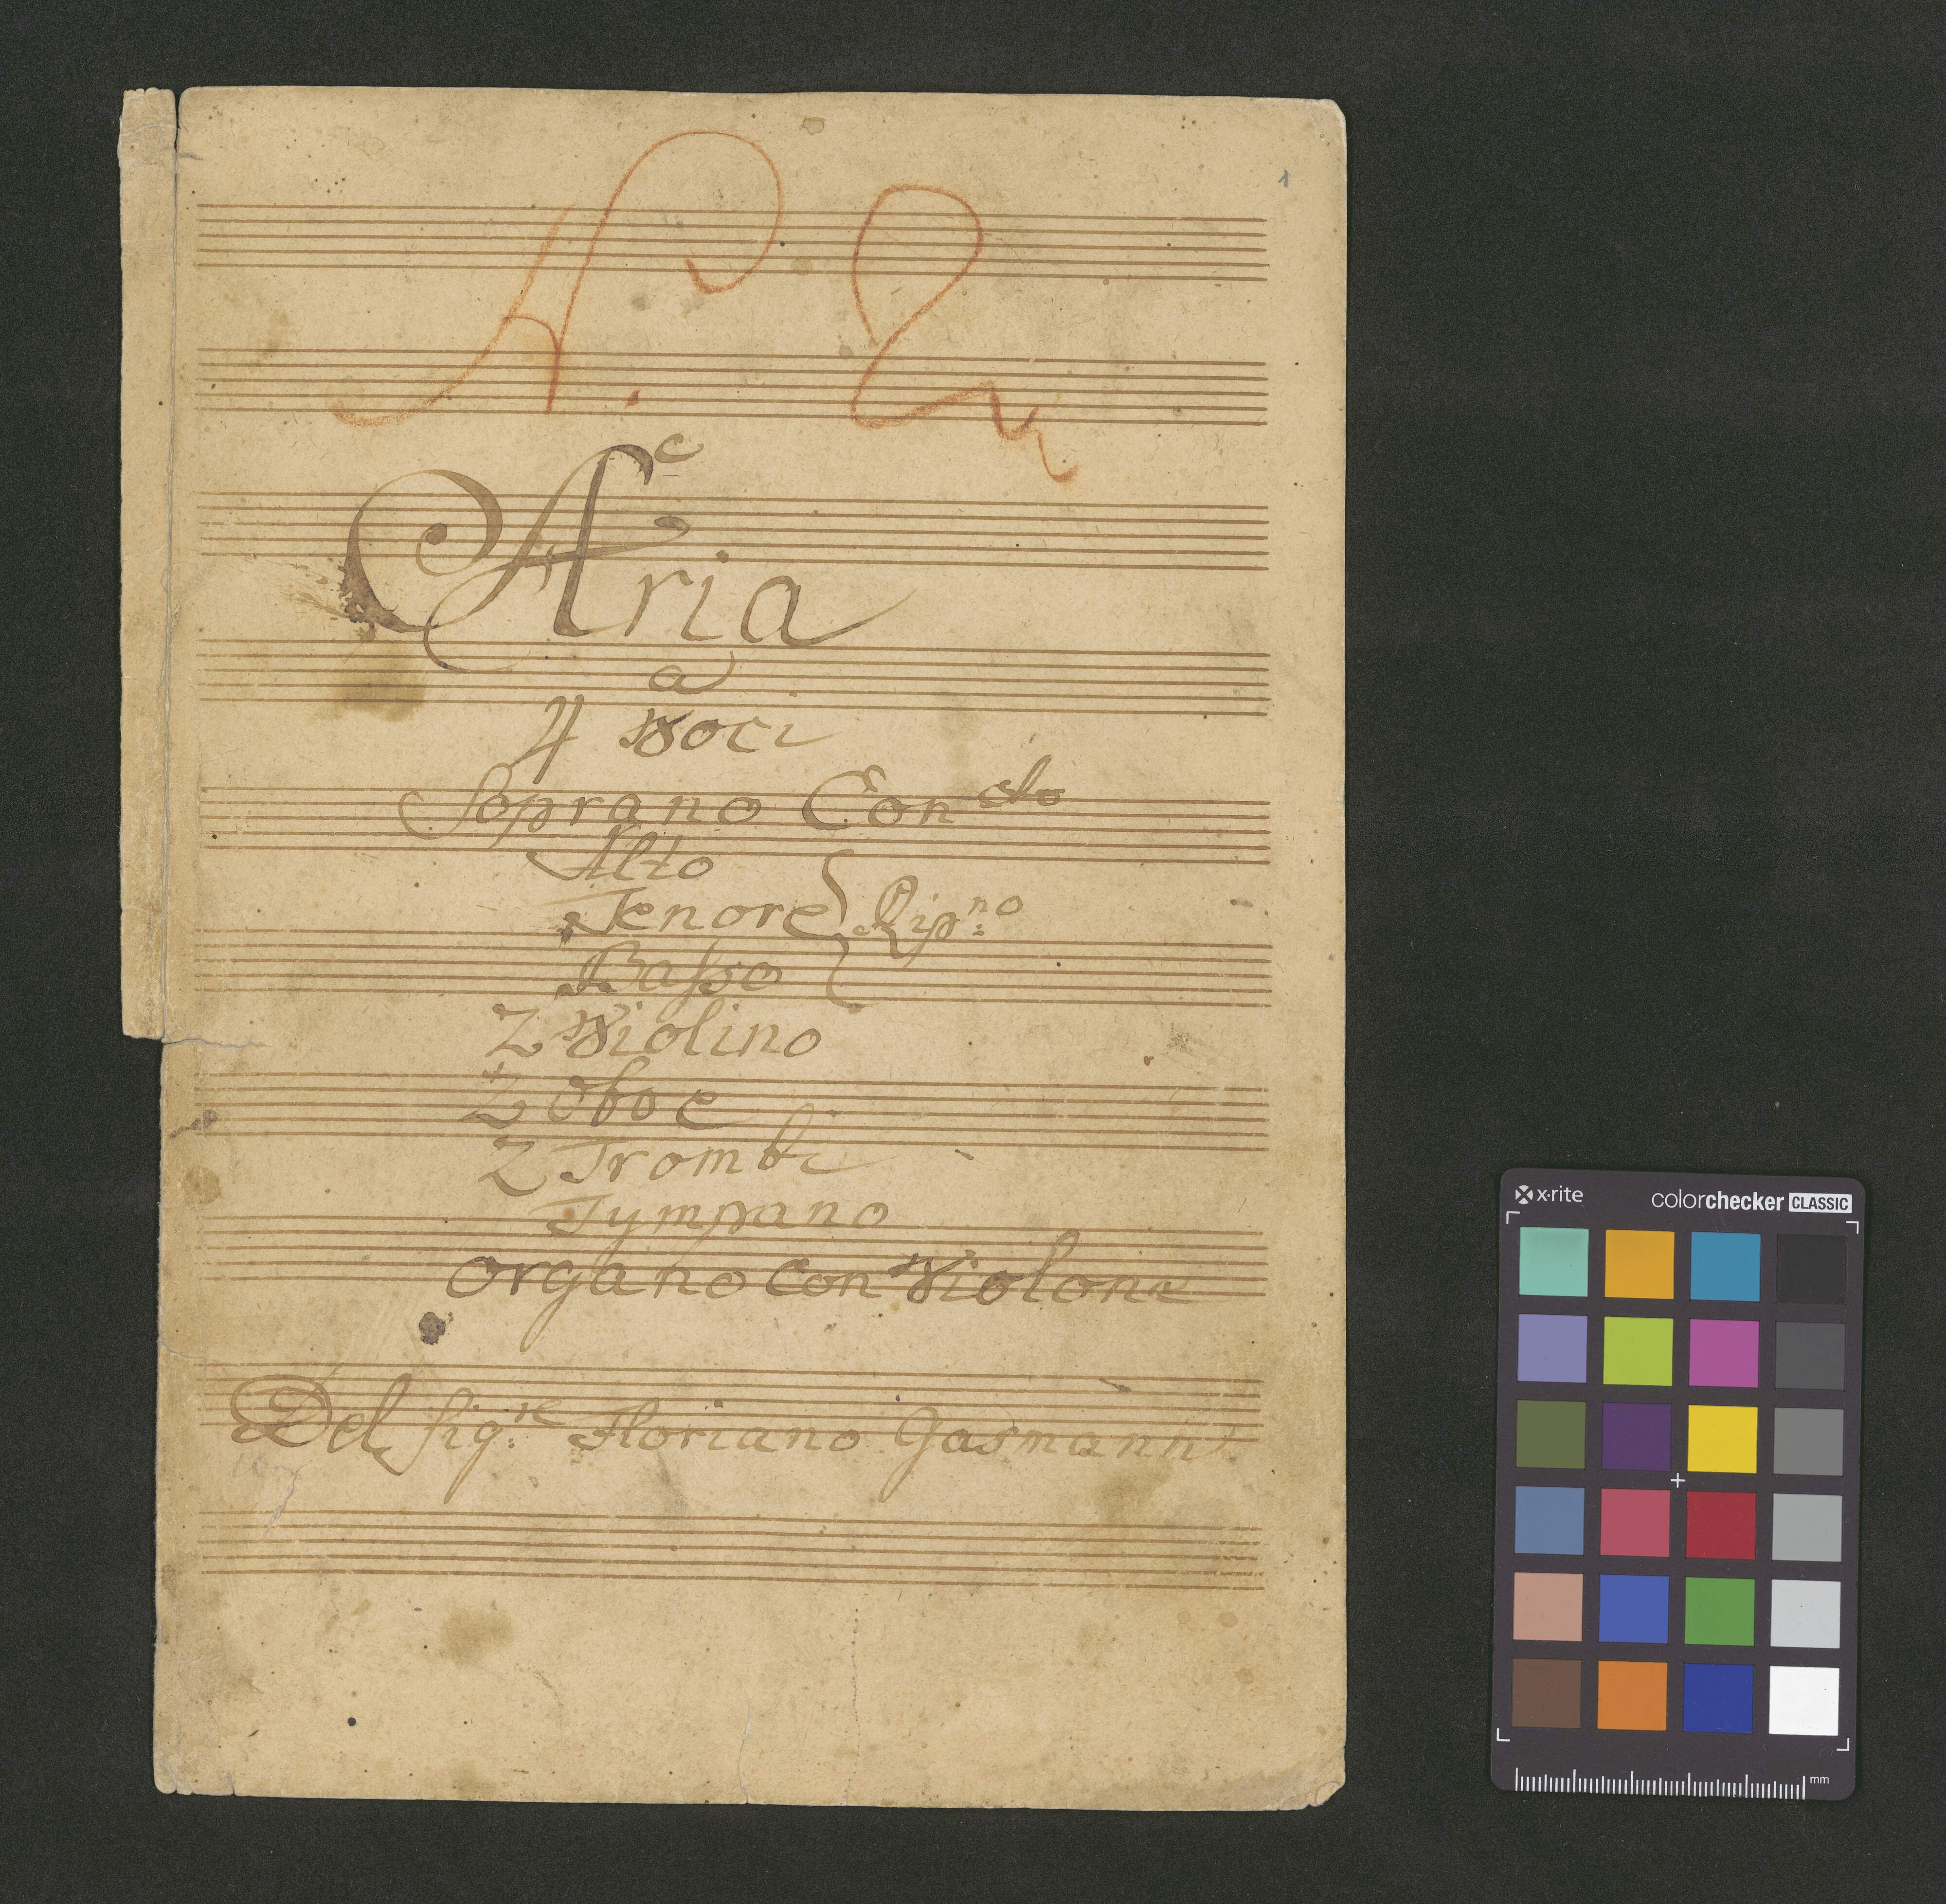 1
N. 2
C
Aria
a
4 Voci
Soprano Concto
Alto
Tenore Ripno:
Basso
2 Violino
2 Oboe
2 Trombe
Tympano
Organo Con Violone
Del Sig:re Floriano Gasmann
x·rite
colorchecker CLASSIC
mm